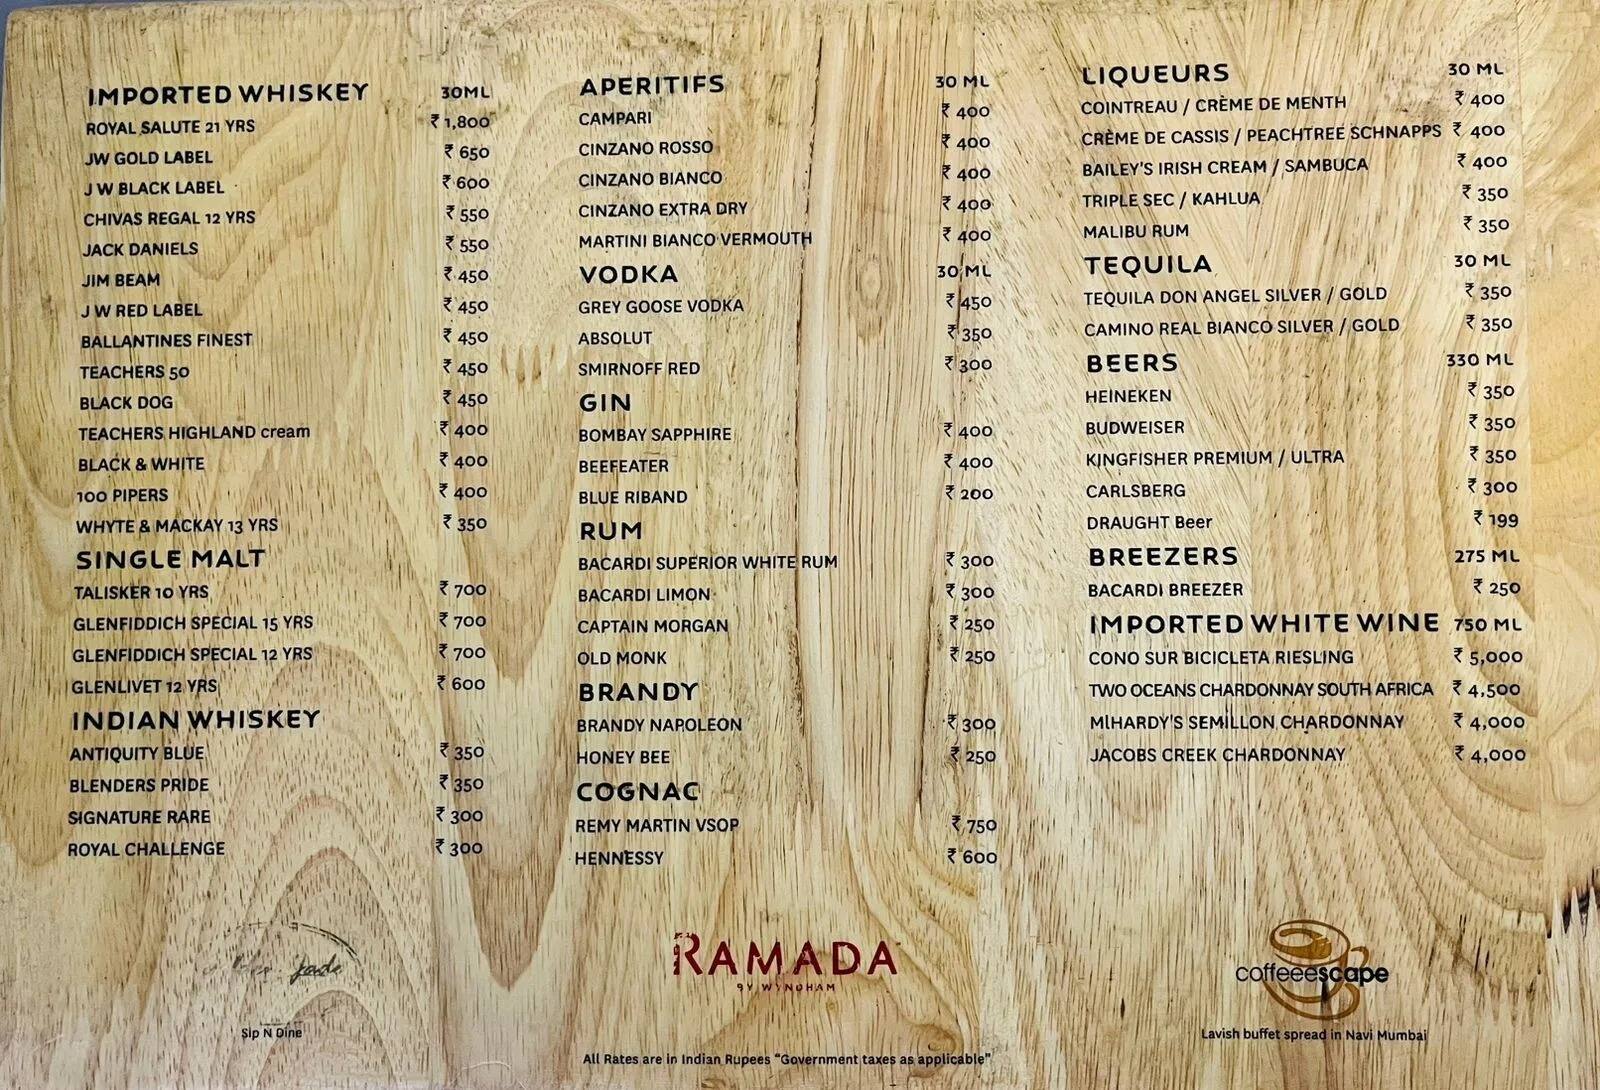 IMPORTED WHISKEY 30ML
ROYAL SALUTE 21 YRS ₹ 1,800
JW GOLD LABEL ₹ 650
J W BLACK LABEL ₹ 600
CHIVAS REGAL 12 YRS ₹ 550
JACK DANIELS ₹ 550
JIM BEAM ₹ 450
J W RED LABEL ₹ 450
BALLANTINES FINEST ₹ 450
TEACHERS 50 ₹ 450
BLACK DOG ₹ 450
TEACHERS HIGHLAND cream ₹ 400
BLACK & WHITE ₹ 400
100 PIPERS ₹ 400
WHYTE & MACKAY 13 YRS ₹ 350
SINGLE MALT
TALISKER 10 YRS ₹ 700
GLENFIDDICH SPECIAL 15 YRS ₹ 700
GLENFIDDICH SPECIAL 12 YRS ₹ 700
GLENLIVET 12 YRS ₹ 600
INDIAN WHISKEY
ANTIQUITY BLUE ₹ 350
BLENDERS PRIDE ₹ 350
SIGNATURE RARE ₹ 300
ROYAL CHALLENGE ₹ 300
APERITIFS 30 ML
CAMPARI ₹ 400
CINZANO ROSSO ₹ 400
CINZANO BIANCO ₹ 400
CINZANO EXTRA DRY ₹ 400
MARTINI BIANCO VERMOUTH ₹ 400
VODKA 30 ML
GREY GOOSE VODKA ₹ 450
ABSOLUT ₹ 350
SMIRNOFF RED ₹ 300
GIN
BOMBAY SAPPHIRE ₹ 400
BEEFEATER ₹ 400
BLUE RIBAND ₹ 200
RUM
BACARDI SUPERIOR WHITE RUM ₹ 300
BACARDI LIMON ₹ 300
CAPTAIN MORGAN ₹ 250
OLD MONK ₹ 250
BRANDY
BRANDY NAPOLEON ₹ 300
HONEY BEE ₹ 250
COGNAC
REMY MARTIN VSOP ₹ 750
HENNESSY ₹ 600
LIQUEURS 30 ML
COINTREAU / CRÈME DE MENTH ₹ 400
CRÈME DE CASSIS / PEACHTREE SCHNAPPS ₹ 400
BAILEY'S IRISH CREAM / SAMBUCA ₹ 400
TRIPLE SEC / KAHLUA ₹ 350
MALIBU RUM ₹ 350
TEQUILA 30 ML
TEQUILA DON ANGEL SILVER / GOLD ₹ 350
CAMINO REAL BIANCO SILVER / GOLD ₹ 350
BEERS 330 ML
HEINEKEN ₹ 350
BUDWEISER ₹ 350
KINGFISHER PREMIUM / ULTRA ₹ 350
CARLSBERG ₹ 300
DRAUGHT Beer ₹ 199
BREEZERS 275 ML
BACARDI BREEZER ₹ 250
IMPORTED WHITE WINE 750 ML
CONO SUR BICICLETA RIESLING ₹ 5,000
TWO OCEANS CHARDONNAY SOUTH AFRICA ₹ 4,500
MIHARDY'S SEMILLON CHARDONNAY ₹ 4,000
JACOBS CREEK CHARDONNAY ₹ 4,000
Jade
Sip N Dine
RAMADA
BY WYNDHAM
coffeeescape
Lavish buffet spread in Navi Mumbai
All Rates are in Indian Rupees "Government taxes as applicable"